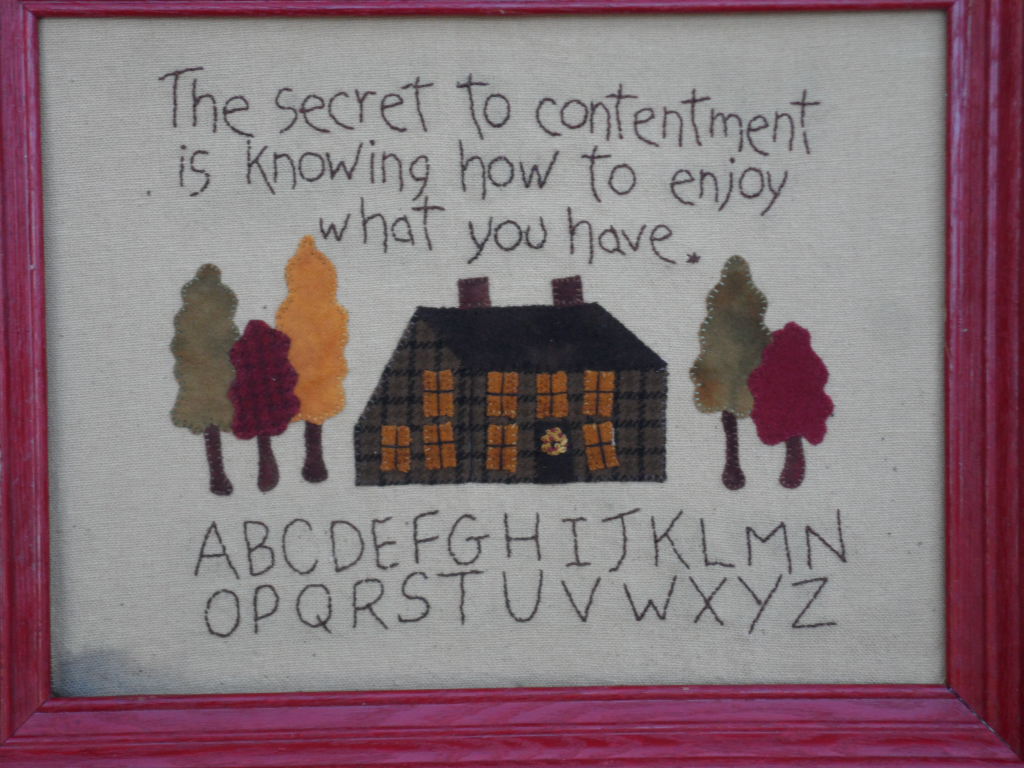 The secret to contentment
is knowing how to enjoy
what you have.
ABCDEFGHIJKLMN
OPQRSTUVWXYZ